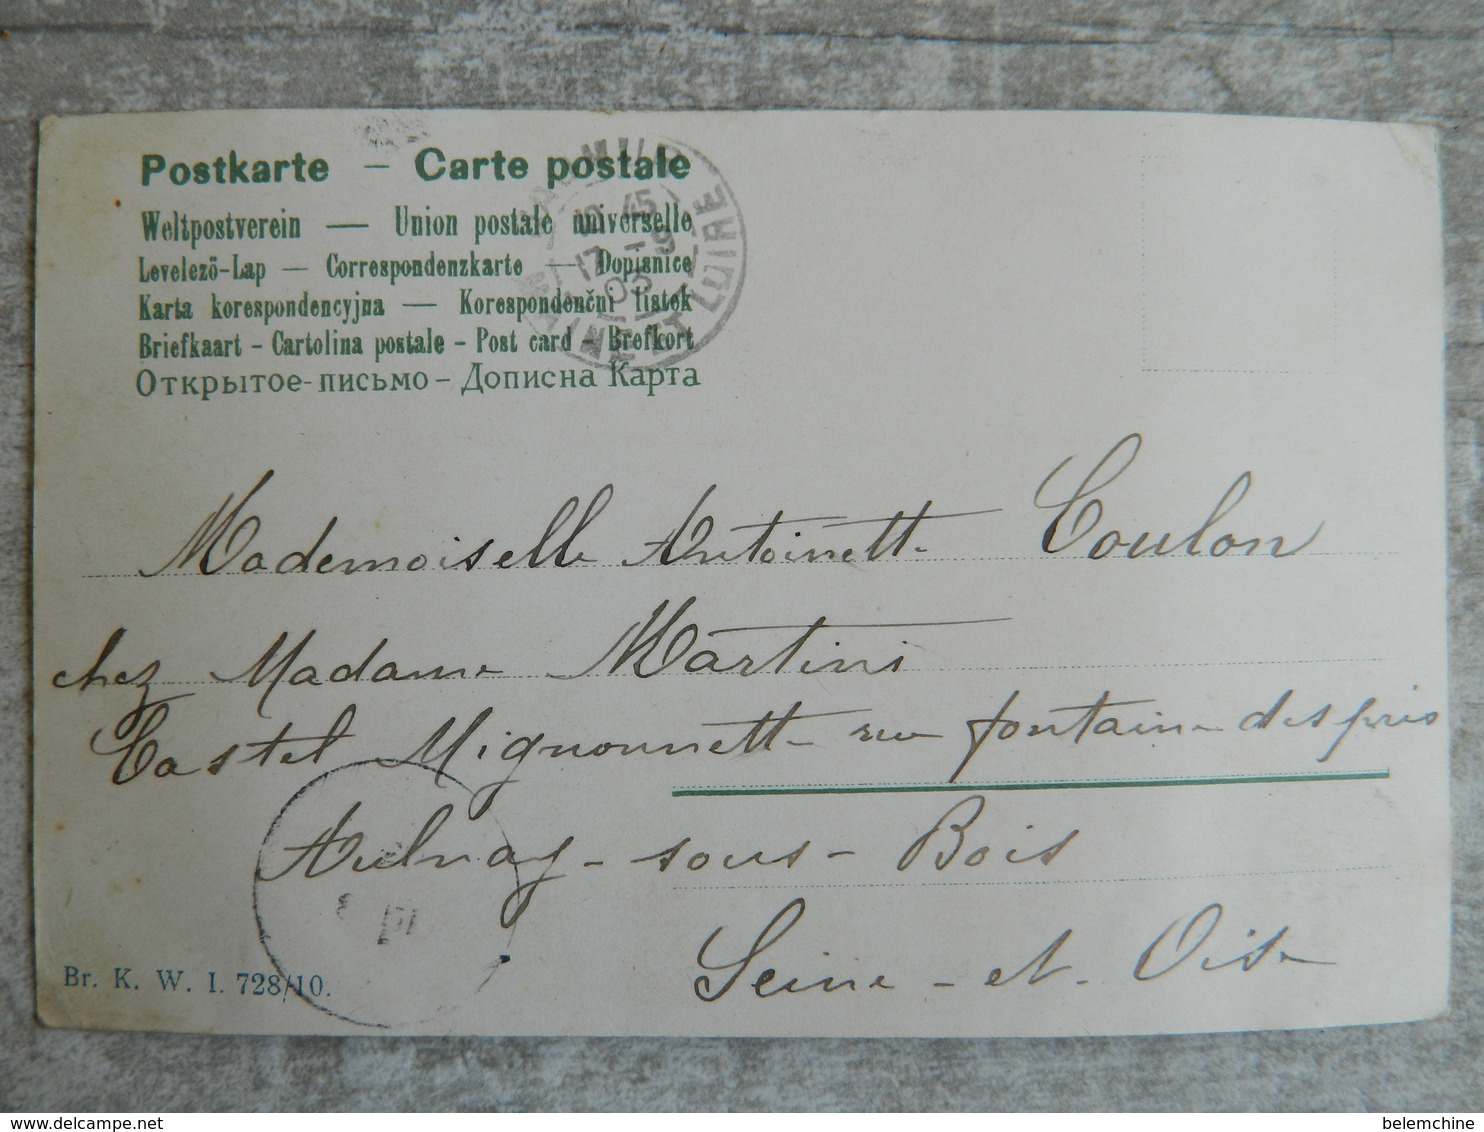 Postkarte — Carte postale
Weltpostverein — Union postale universelle
Levelező-Lap — Correspondenzkarte — Dopisnice
Karta korespondencyjna — Korespondenční lístek
Briefkaart - Cartolina postale - Post card - Brefkort
Открытое-письмо - Дописна Карта
45
17 - 9
MAINE ET LOIRE
Mademoiselle Antoinette Coulon
chez Madame Martini
Castel Mignonnette rue fontaine des prés
Aulnay-sous-Bois
Seine-et-Oise
Br. K. W. I. 728/10.
belemchine